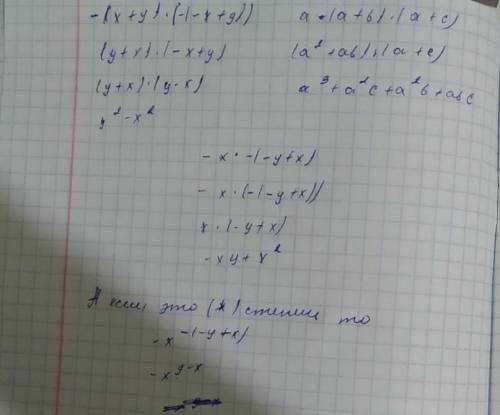 -(x+y)·(-(-x+y))
(y+x)·(-x+y)
(y+x)·(y-x)
y²-x²
a·(a+b)·(a+c)
(a²+ab)·(a+c)
a³+a²c+a²b+abc
-x·-(-y+x)
-x·(-(-y+x))
x·(-y+x)
-xy+x²
А если это (x) степени то
-x^-(-y+x)
-x^y-x